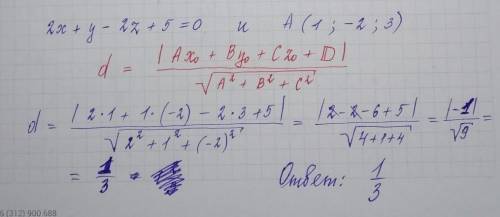 2x + y - 2z + 5 = 0 и A (1 ; -2 ; 3)
d = |Ax₀ + By₀ + Cz₀ + D| / √(A² + B² + C²)
d = |2·1 + 1·(-2) - 2·3 + 5| / √(2² + 1² + (-2)²) = |2 - 2 - 6 + 5| / √(4+1+4) = |-1| / √9 =
= 1/3 Ответ: 1/3
6 (312) 900 688